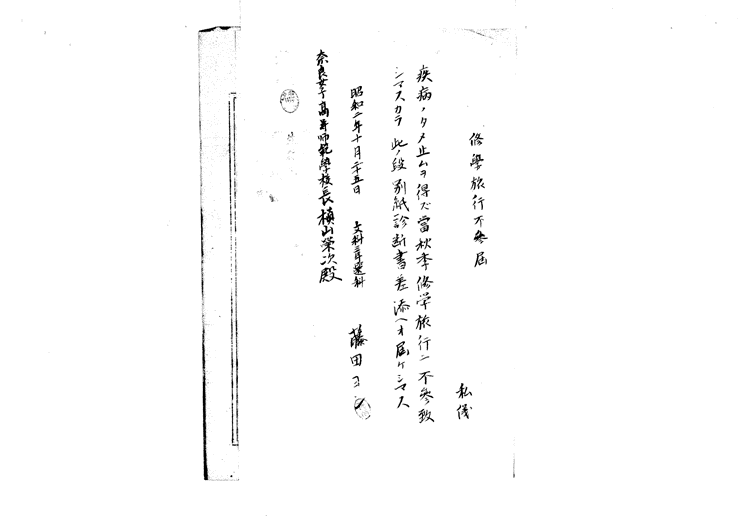 修學旅行不參届
私儀
疾病ノタメ止ムヲ得ズ當秋季修学旅行ニ不參致
シマスカラ此ノ段別紙診断書差添ヘオ届ケシマス
昭和二年十月二十五日 文科 選科 藤田
奈良女子高等師範學校長槙山榮次殿